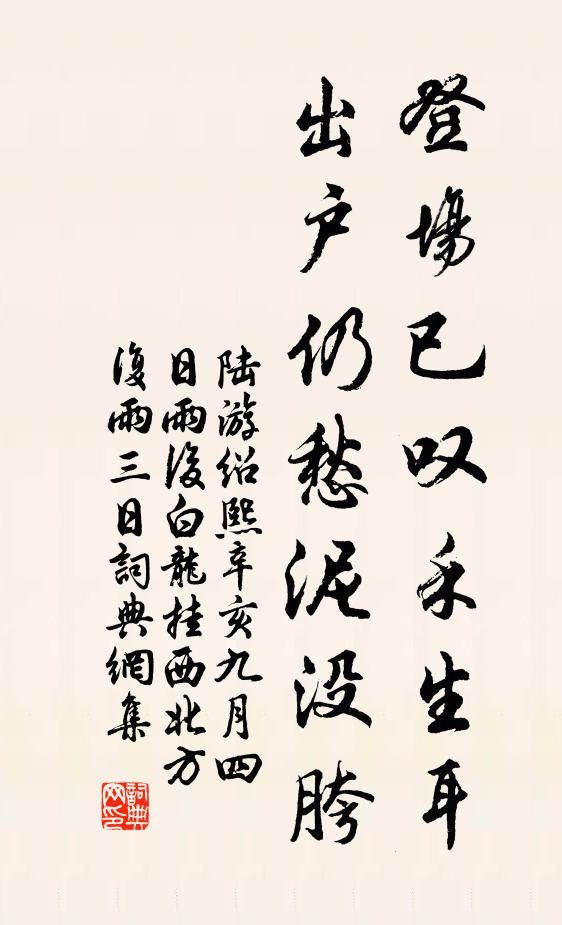 登場已叹禾生耳
出户仍愁泥没胯
陆游绍熙辛亥九月四
日雨後白龍挂西北方
復雨三日詞典網集
詞典网印